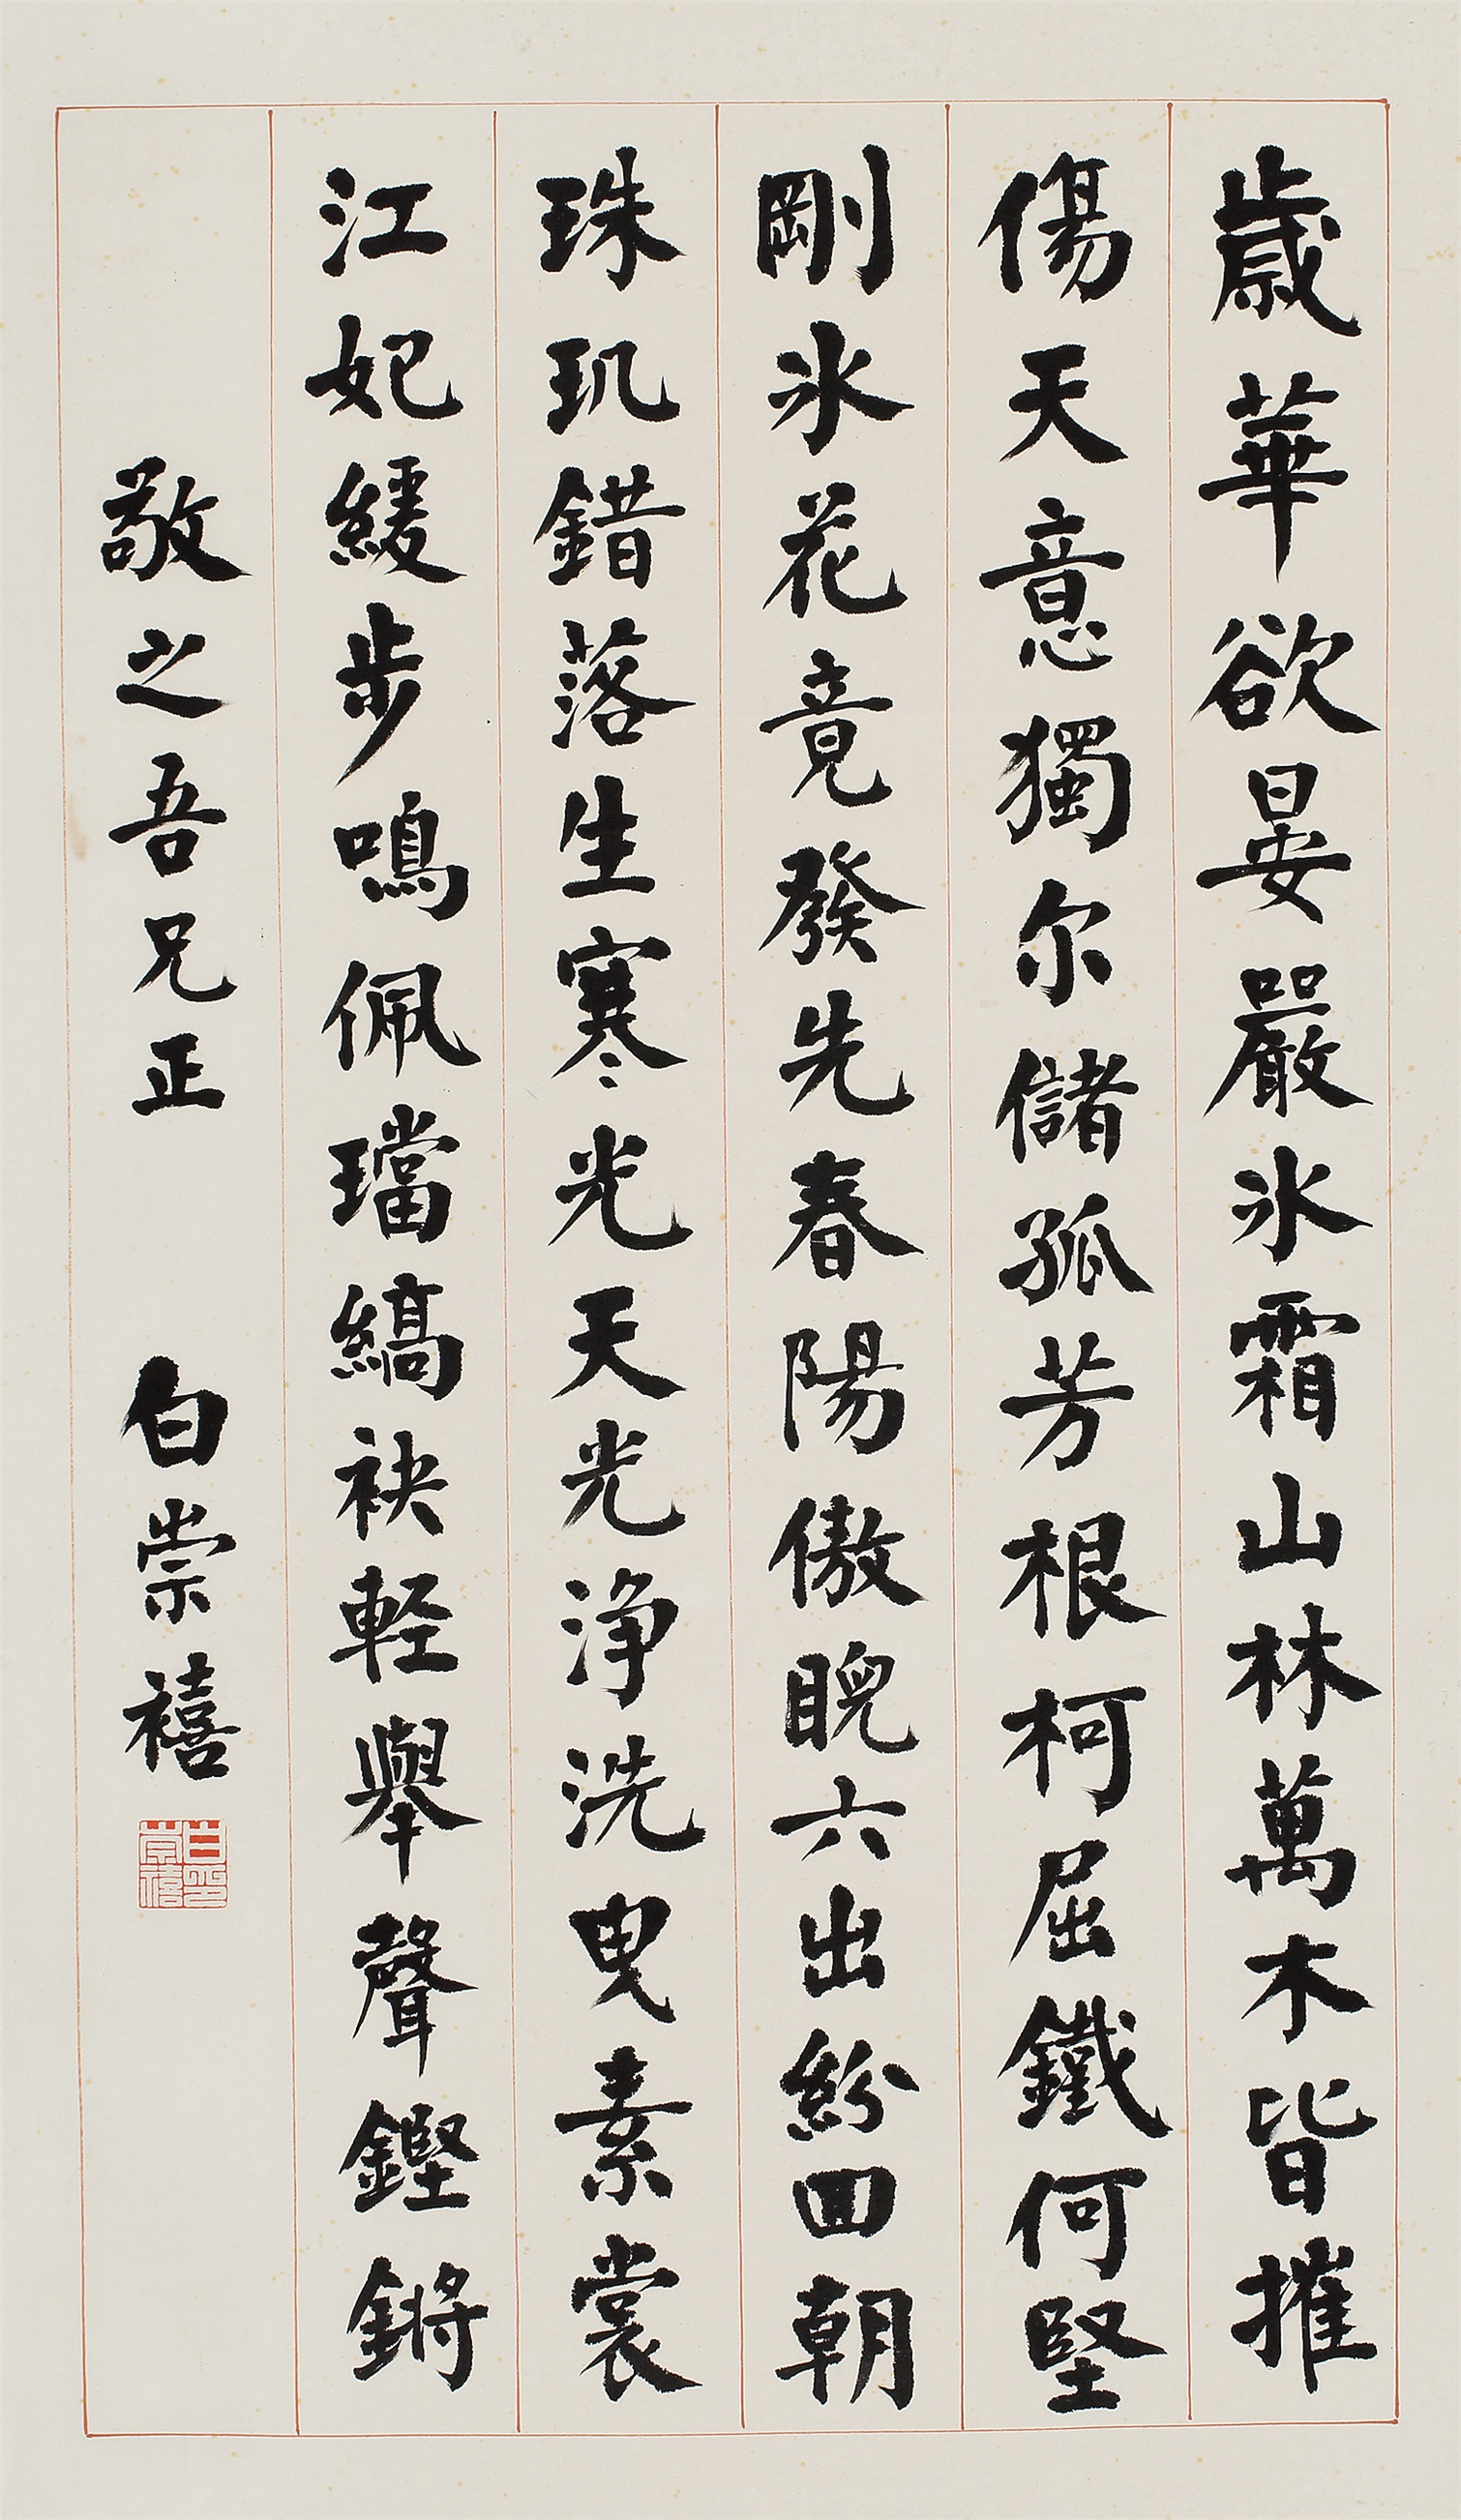 歲華欲晏嚴冰霜山林萬木皆摧
傷天意獨尔儲孤芳根柯屈鐵何堅
剛冰花竟發先春陽傲睨六出紛回朝
珠玑錯落生寒光天光淨洗曳素裳
江妃緩步鳴佩璫縞袂輕舉聲鏗鏘
敬之吾兄正 白崇禧
白崇禧印